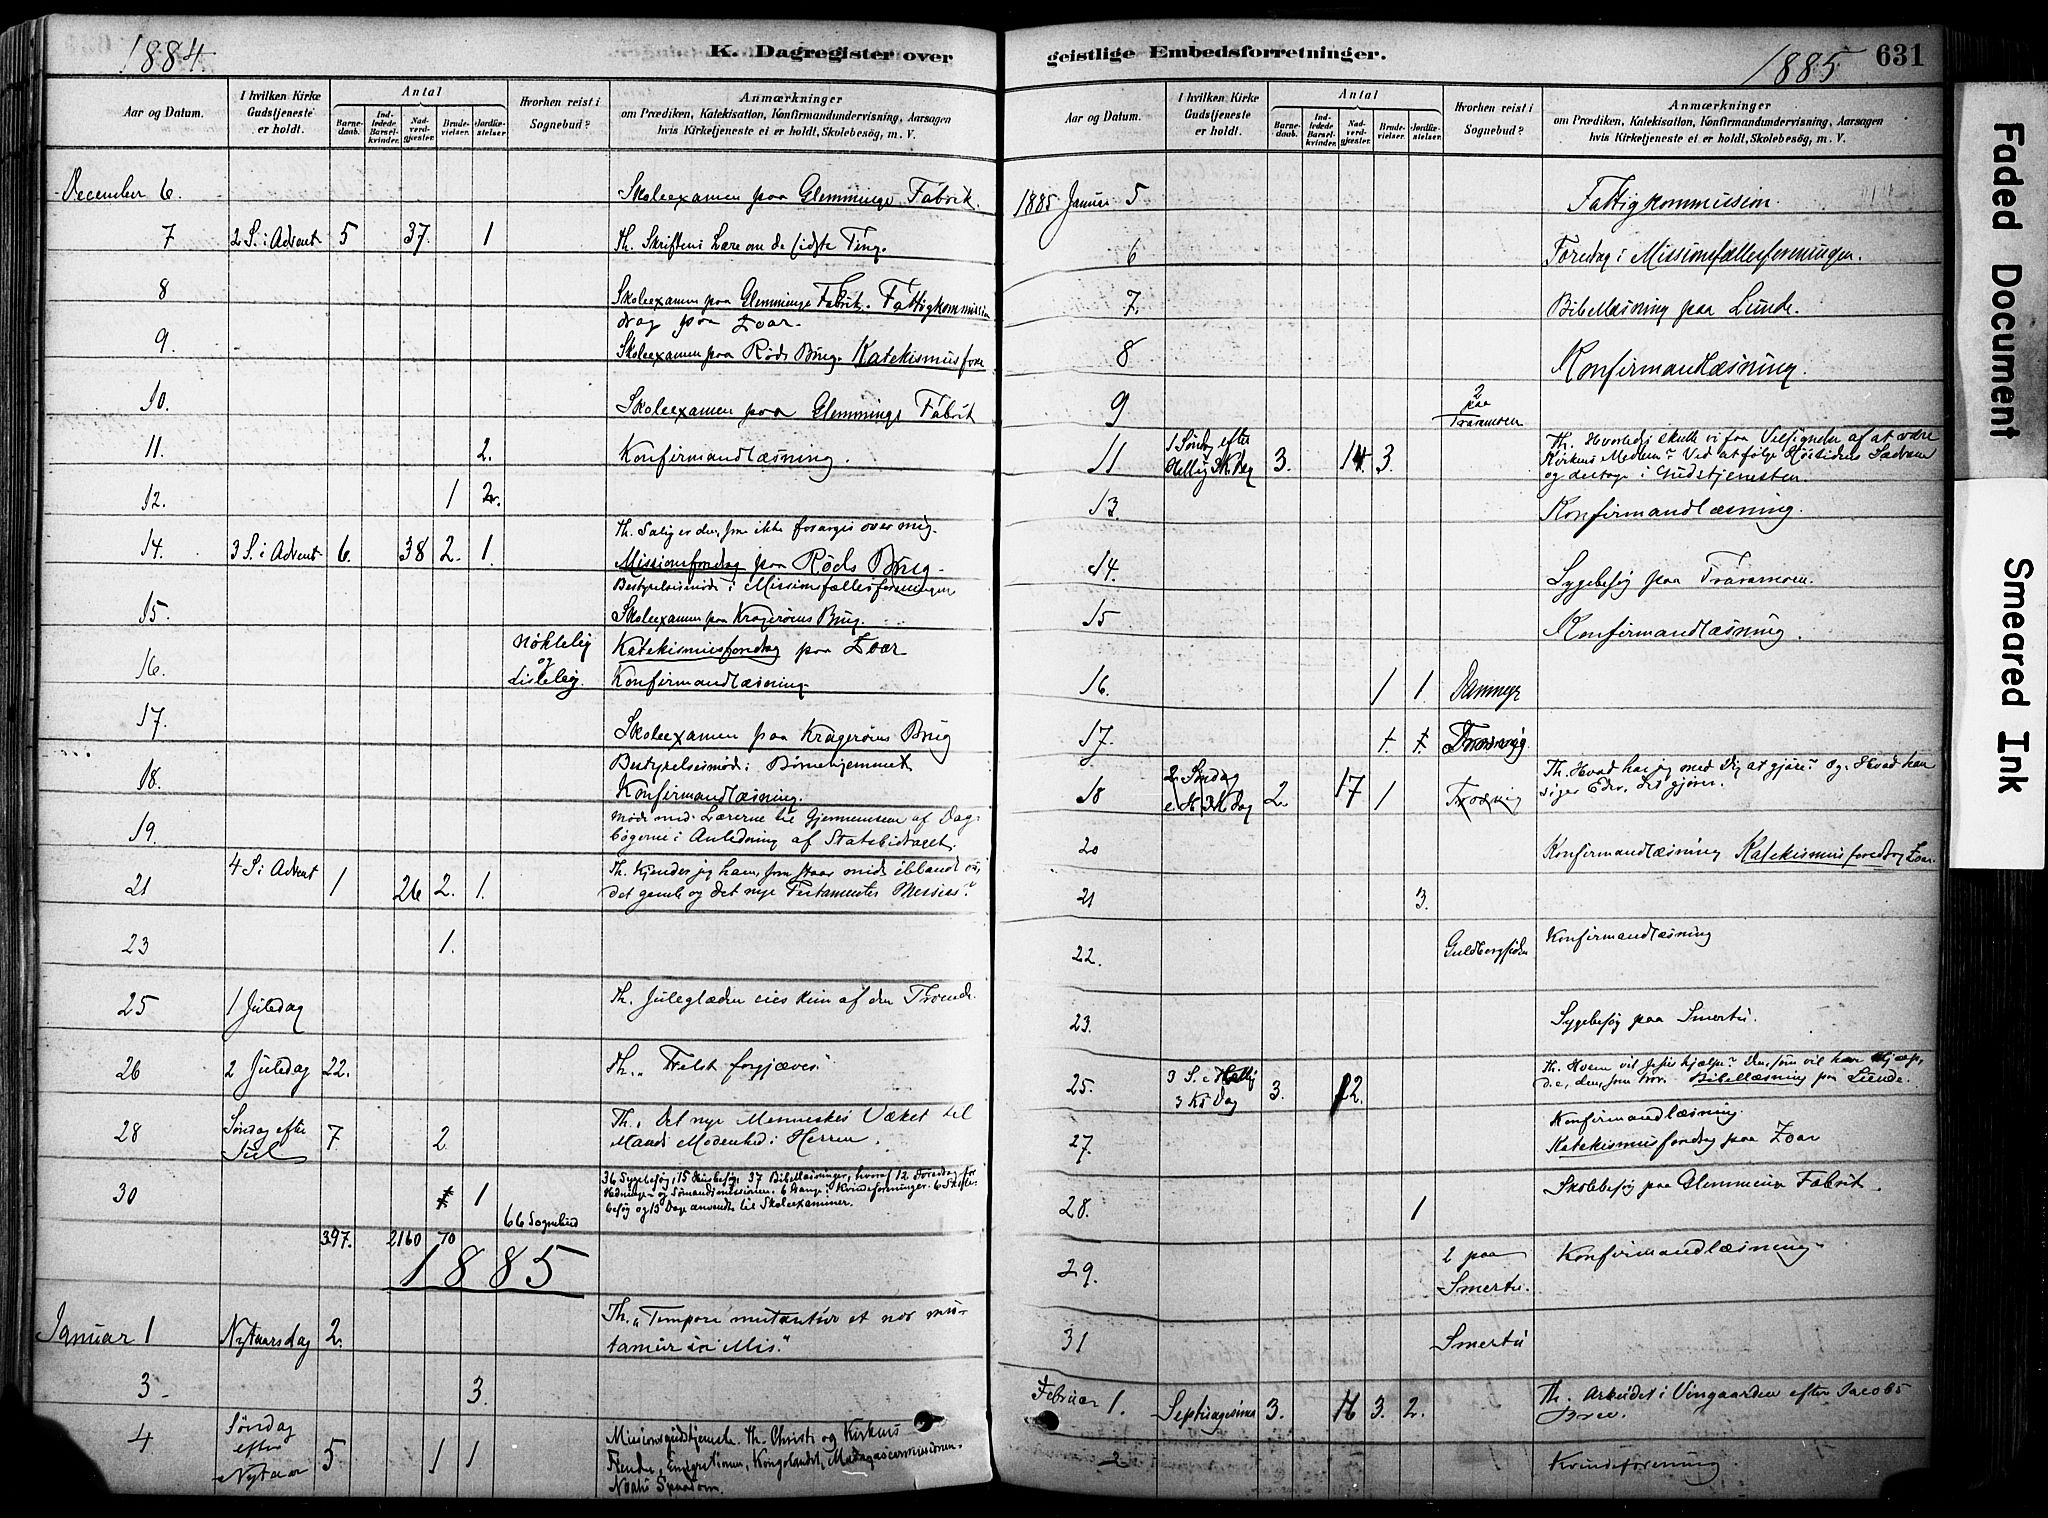 1884.
K. Dagregister over
Aar og Datum.
I hvilken Kirke Gudstjeneste er holdt.
Antal
Barnedaab.
Indledede Barselkvinder.
Nadverdgjæster.
Brudevielser.
Jordfæstelser.
Hvorhen reist i Sognebud?
Anmærkninger
om Prædiken, Katekisation, Konfirmandundervisning, Aarsagen
hvis Kirketjeneste ei er holdt, Skolebesøg, m. V.
December 6. Skoleexamen paa Glemminge Fabrik.
7 2 S. i Advent 5 37. 1 Th. Skriftens Lære om de sidste Ting.
8 Skoleexamen paa Glemminge Fabrik. Fattigkommission
drag paa Zoar.
9. Skoleexamen paa Røds Brug. Katekismusfore
10. Skoleexamen paa Glemminge Fabrik
11. 2. Konfirmandlæsning.
12. 1 2.
14. 3 S. i Advent 6. 38 2. 1. Th. Salig er den, som ikke forarges over mig.
Missionsforedrag paa Røds Brug.
Bestyrelsesmøde i Missionsfællesforeningen
15. Skoleexamen paa Kragerøens Brug.
16. Nøkleby og Lisleby. Katekismusforedrag paa Zoar
Konfirmandlæsning.
17. Skoleexamen paa Kragerøens Brug
Bestyrelsesmød i Børnehjemmet
18. Konfirmandlæsning.
19. Møde med Lærerne til Gjennemseen af Dag-
bøgerne i Anledning af Statsbidraget.
21 4 S. i Advent 1 26 2. 1. Th. Kjender jeg ham, som staar midt iblandt os,
det gamle og det nye Testamentes Messias?
23 1.
25 1 Juledag Th. Juleglæden eies kun af den Troende.
26 2 Juledag 22. Th. Frelst forgjæves.
28 Søndag efter Jul 7. 2 Th. Det nye Menneskes Vækst til
Mands Modenhed i Herren.
30 1 36 Sygebesøg, 15 Husbesøg, 37 Bibellæsninger, hvoraf 12 Foredrag for
Hedninge- og Sømandsmissionen, 6 Gange i Kvindeforeninger. 6 Skole-
besøg og 13 Dage anvendte til Skoleexaminer.
66 Sognebud
397. 2160 70
1885
Januar 1 Nytaarsdag 2. Th. "Tempora mutantur et nos mu-
tamur in illis."
3. 3.
4 Søndag efter Nytaar 5 1 1 Missionsgudstjeneste. Th. Christi og Kirkens
Fiende, Emigrationen, Kongolandet, Madagascarmissionen.
geistlige Embedsforretninger.
1885
631
Aar og Datum.
I hvilken Kirke Gudstjeneste er holdt.
Antal
Barnedaab.
Indledede Barselkvinder.
Nadverdgjæster.
Brudevielser.
Jordfæstelser.
Hvorhen reist i Sognebud?
Anmærkninger
om Prædiken, Katekisation, Konfirmandundervisning, Aarsagen
hvis Kirketjeneste ei er holdt, Skolebesøg, m. V.
1885 Januar 5 Fattigkommission.
6 Foredrag i Missionsfællesforeningen.
7. Bibellæsning paa Lunde.
8 Konfirmandlæsning.
9 2 paa Traramoen
11 1 Søndag efter Hellig 3 K. Dag 3. 14 3. Th. Hvorledes skulle vi faa Velsignelse af at være
Kirkens Medlem? Ved at følge Høitidens Sædvane
og deltage i Gudstjenesten.
13. Konfirmandlæsning.
14. Sygebesøg paa Traramoen.
15 Konfirmandlæsning.
16. 1 1.
17. 1. 1.
18 2 Søndag e. H. 3 K. Dag 2. 17 1 Th. Hvad har jeg med Dig at gjøre? og: Hvad han
siger Eder, det gjører.
20 Konfirmandlæsning Katekismusforedrag Zoar.
21 3.
22. Guldbergsiden Konfirmandlæsning
23. Sygebesøg paa Smertu.
25. 3 S. e. Hellig 3 K. Dag 3. 12. Th. Hvem vil Jesus hjælpe? Den, som vil have Hjælp,
d. e. den, som tror. Bibellæsning paa Lunde.
27. Konfirmandlæsning.
Katekismusforedrag paa Zoar
28. 1 Skolebesøg paa Glemminge Fabrik.
29. 2 paa Smertu. Konfirmandlæsning
31 Smertu
Februar 1. Septuagesima 3. 16 3. 2. Th. Arbeidet i Vingaarden efter Jacobs
Brev.
2 Kvindeforening.
Faded Document
Smeared Ink